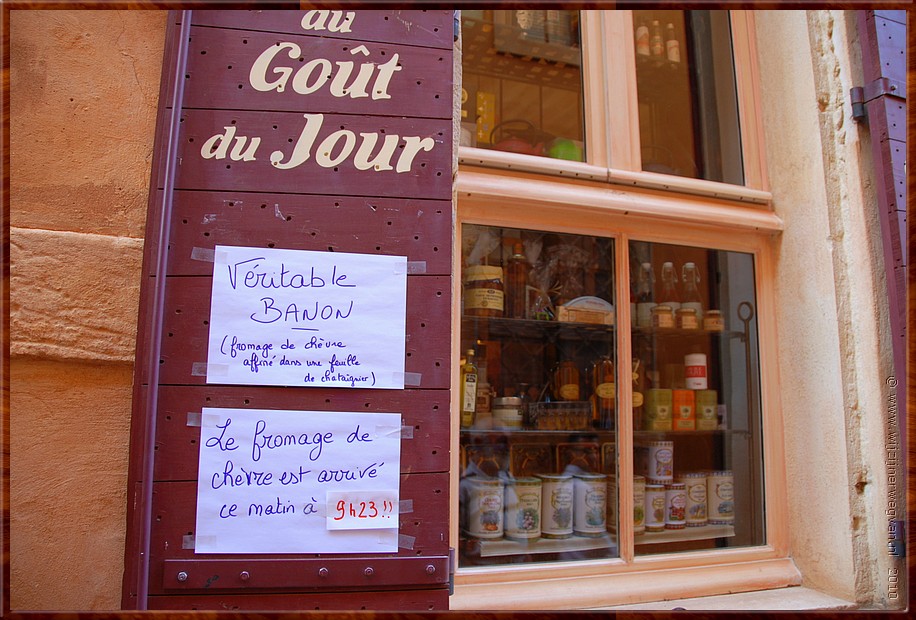 au
Goût
du Jour
Véritable
BANON
(fromage de chèvre
affiné dans une feuille
de chataîgnier)
Le fromage de
chèvre est arrivé
ce matin à 9h23!!